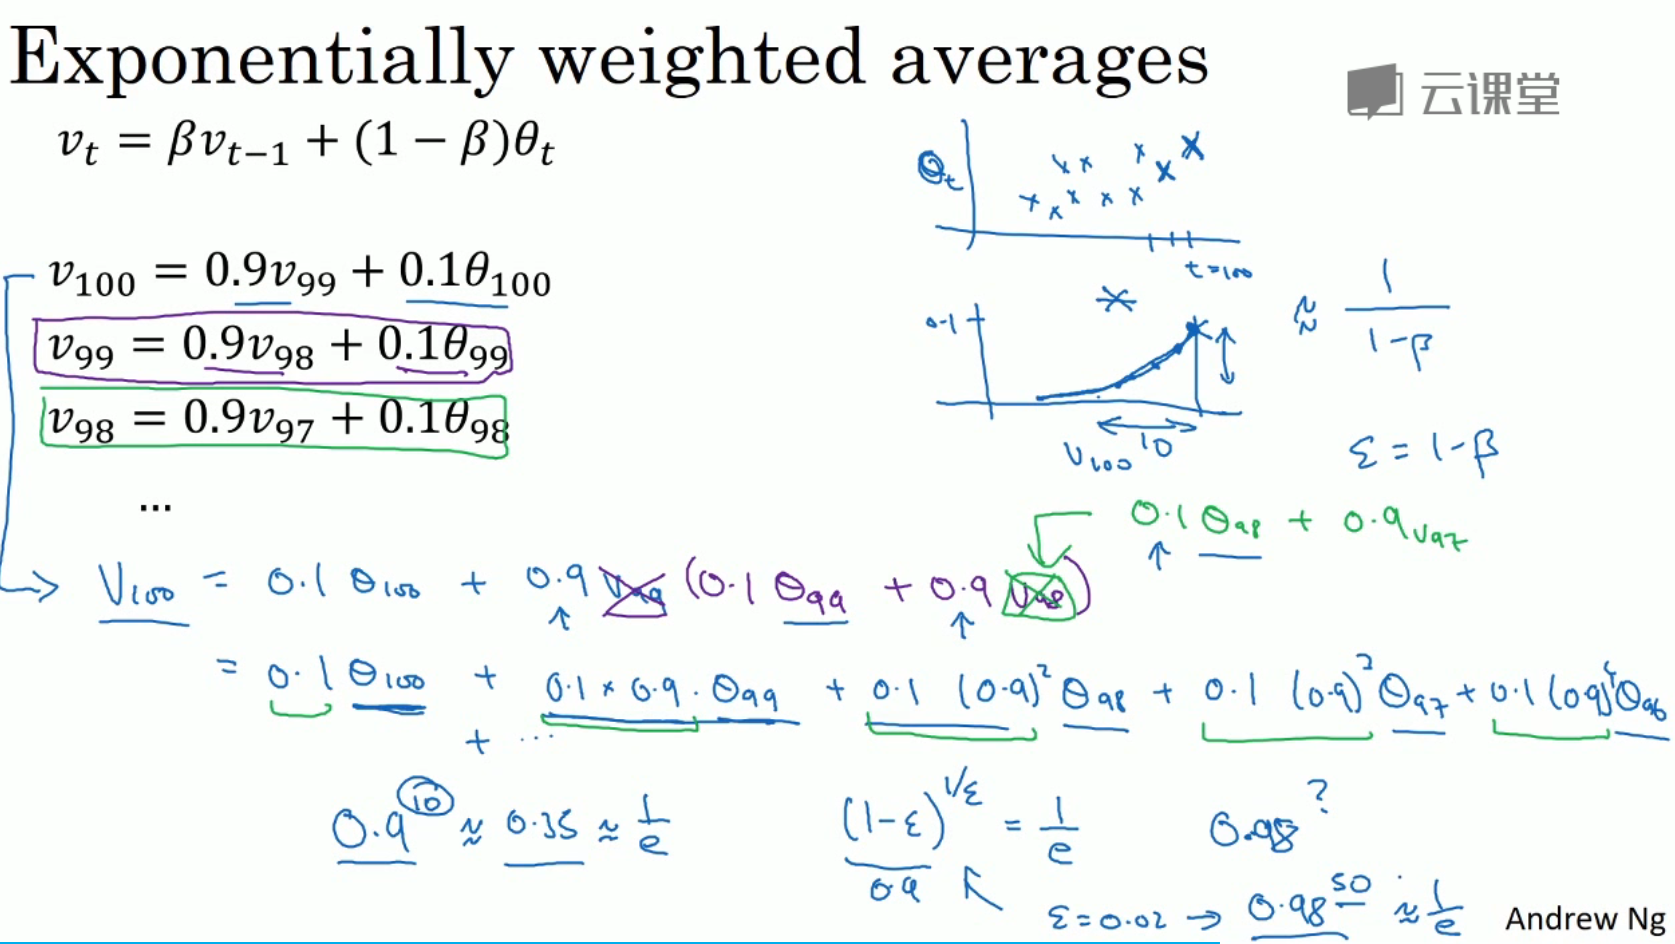 Exponentially weighted averages
云课堂
v_t = βv_{t−1} + (1 − β)θ_t
v_100 = 0.9v_99 + 0.1θ_100
v_99 = 0.9v_98 + 0.1θ_99
v_98 = 0.9v_97 + 0.1θ_98
...
θ_t
t=100
0.1
10
V_100
≈ 1/(1-β)
ε = 1-β
0.1 θ_98 + 0.9 v_97
V_100 = 0.1 θ_100 + 0.9 v_99 (0.1 θ_99 + 0.9 v_98)
= 0.1 θ_100 + 0.1 × 0.9 · θ_99 + 0.1 (0.9)² θ_98 + 0.1 (0.9)³ θ_97 + 0.1 (0.9)⁴ θ_96
+ ...
0.9^10 ≈ 0.35 ≈ 1/e
(1-ε)^{1/ε} = 1/e
0.9
0.98^?
ε = 0.02 → 0.98^50 ≈ 1/e
Andrew Ng